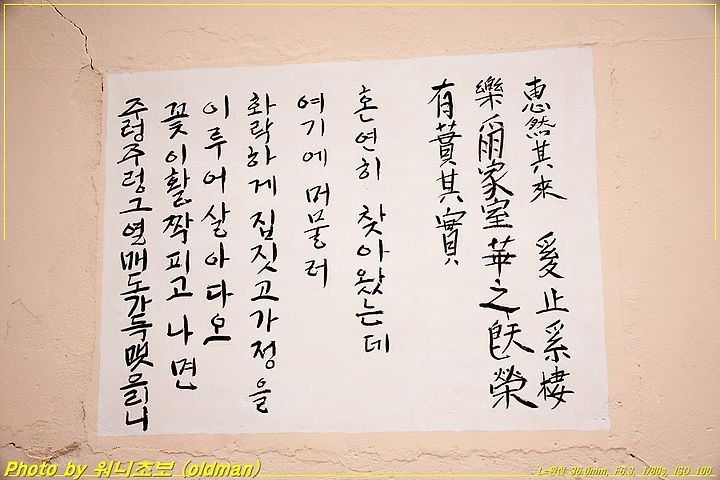 惠然其來 爰止奚棲
樂爾家室華之旣榮
有蕡其實
혼연히 찾아왔는데
여기에 머물러
화락하게 집짓고 가정을
이루어 살아다오
꽃이 활짝 피고 나면
주렁주렁 그 열매도 가득 맺을리니
Photo by 워니초보 (oldman)
36.0mm, F6.3, 1/80s, ISO 100